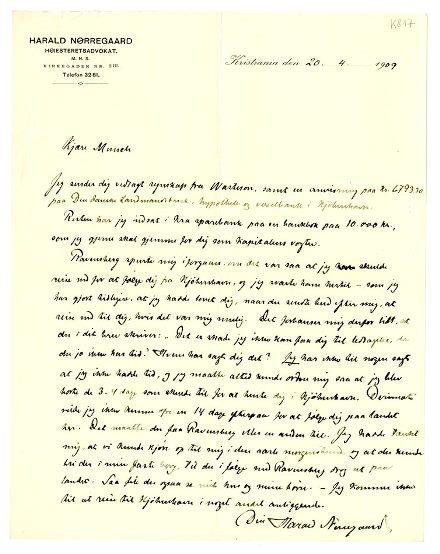 K 817
HARALD NØRREGAARD
HØIESTERETSADVOKAT.
M. H. S.
KIRKEGADEN NR.
Telefon 3261.
Kristiania den 20 - 4 - 1909
Kjære Munch
Jeg sender dig vedlagt regnskap fra samt en anvisning paa Kr. 6793.30
paa Den danske Landmandsbank, hypothek og vexelbank i Kjöbenhavn.
Resten har jeg indsat i Kra sparebank paa en bankbok paa 10.000 kr,
som jeg gjerne skal gjemme for dig som Kapitalens vogter.
Ravensberg spurte mig iforgaars om det var saa at jeg skulde
reise ned for at følge dig fra Kjöbenhavn, og jeg svarte ham hertil - som jeg
har gjort tidligere, at jeg hadde lovet dig, naar du sendte bud efter mig, at
reise ned til dig, hvis det var mig mulig. Det forbauser mig derfor litt, at
du i dit brev skriver: " Det er skade jeg ikke kan faa dig til ledsagelse, da
du jo ikke har tid." Hvem har sagt dig det? Jeg har ikke til nogen sagt
at jeg ikke hadde tid, og jeg maatte altid kunde ordne mig saa at jeg blev
borte de 3-4 dage som skulde til for at hente dig i Kjöbenhavn. Derimot
vilde jeg ikke kunne en 14 dage for at følge dig paa landet
her. Det maatte du faa Ravensberg eller en anden til. Jeg hadde tænkt
mig, at vi kunde kjøre op til mig i den aarle morgenstund og at du kunde
bo der i min fars Til du i følge med Ravensberg drog ut paa
landet. Saa fik du ogsaa se mit hus og mine høns. - Jeg kommer ikke
til at reise til Kjöbenhavn i noget andet anliggende.
Din Harald Nørregaard.